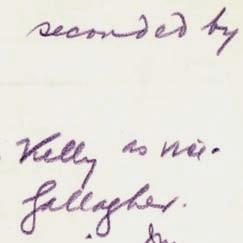 seconded by
Kelly as vice-
Gallagher.